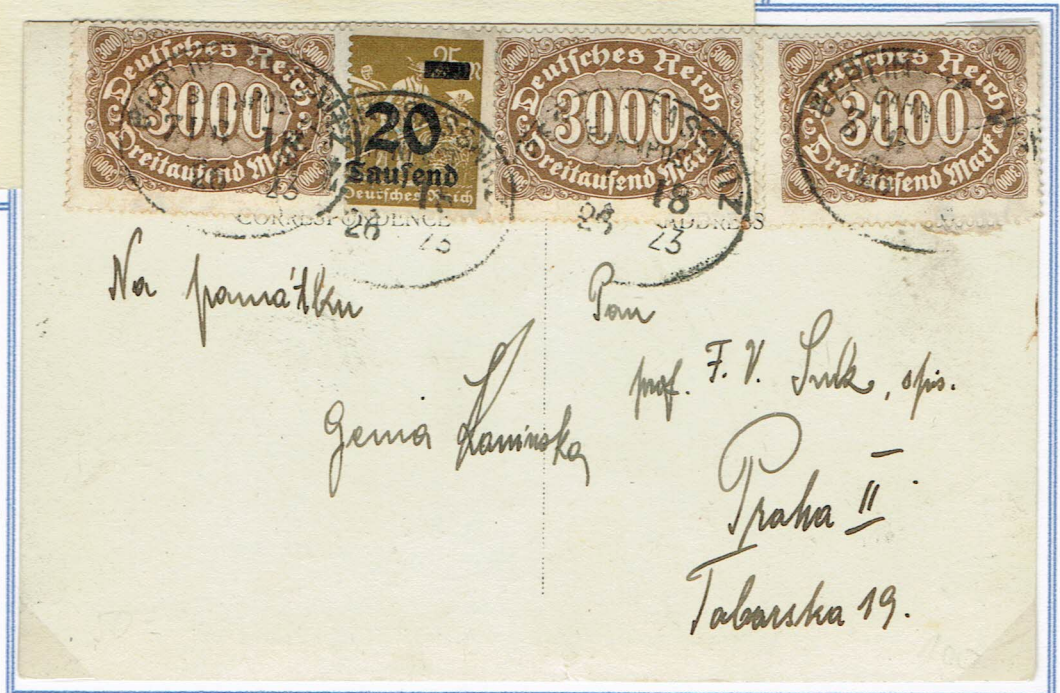 Deutsches Reich
3000
Dreitausend Mark
25
20
Tausend
Deutsches Reich
Deutsches Reich
3000
Dreitausend Mark
Deutsches Reich
3000
Dreitausend Mark
18
23
23
18
23
CORRESPONDENCE
ADDRESS
Na památku
Genia Kaminska
Pan
prof. F. V. Suk, spis.
Praha II
Taborska 19.